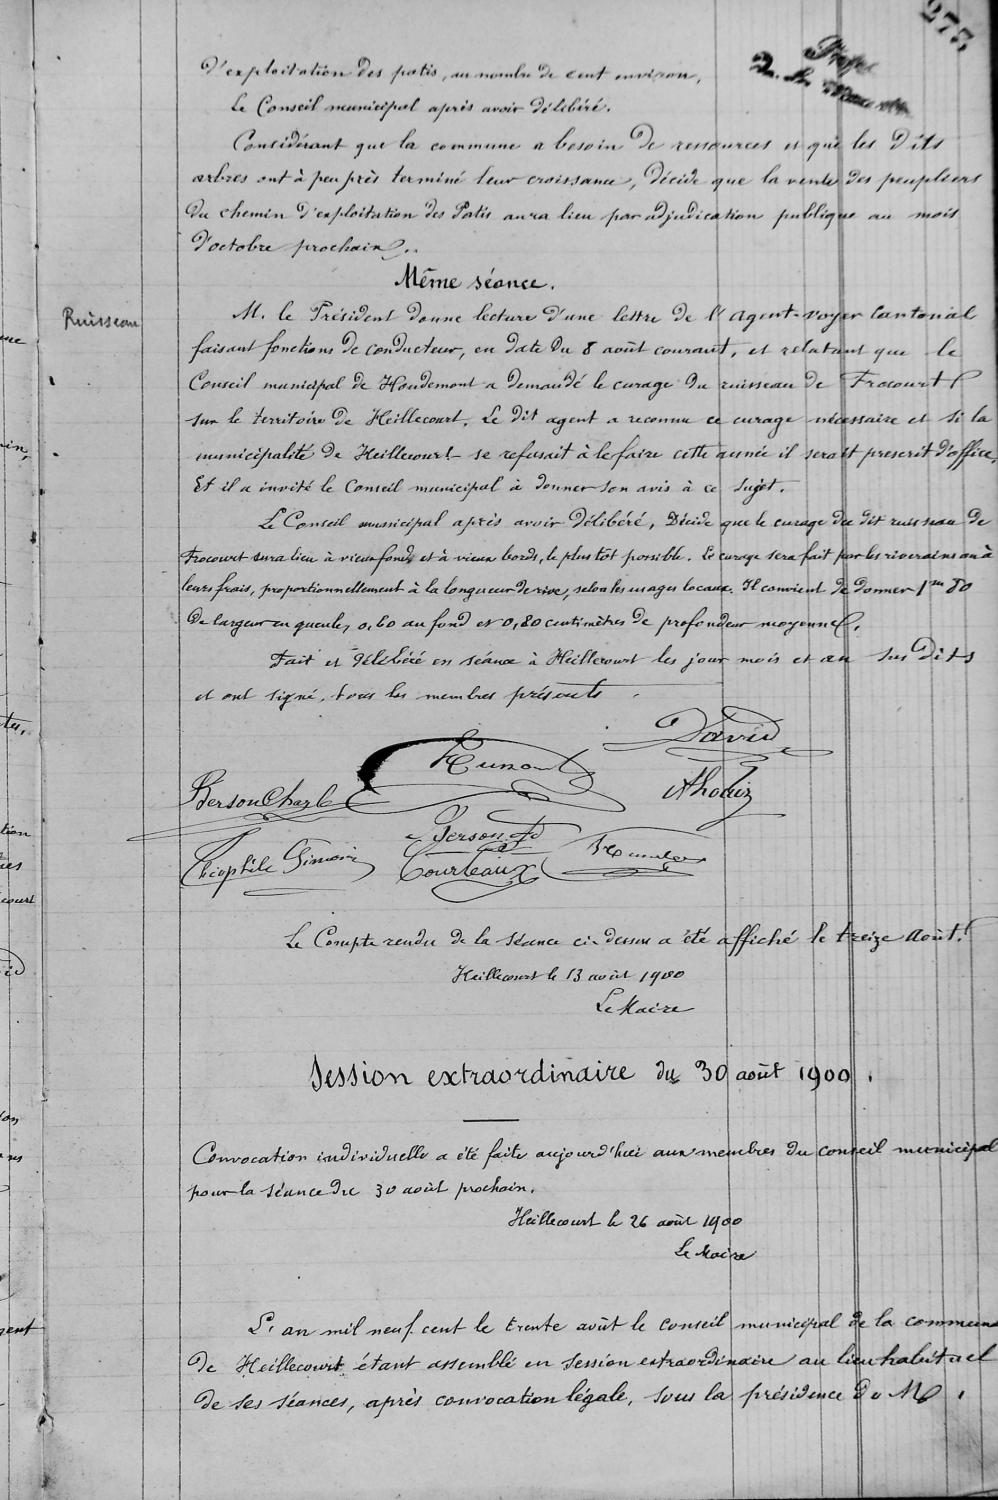 273
d'exploitation des patis, au nombre de cent environ,
Le Conseil municipal après avoir délibéré.
Considérant que la commune a besoin de ressources et que les dits
arbres ont à peu près terminé leur croissance, décide que la vente des peupliers
du chemin d'exploitation des Patis aura lieu par adjudication publique au mois
d'octobre prochain.
Même séance.
Ruisseau
M. le Président donne lecture d'une lettre de l'agent-voyer cantonal
faisant fonctions de conducteur, en date du 8 août courant, et relatant que le
Conseil municipal de Houdemont a demandé le curage du ruisseau de Frocourt
sur le territoire de Heillecourt. Le dit agent a reconnu ce curage nécessaire et si la
municipalité de Heillecourt se refusait à le faire cette année il serait prescrit d'office.
Et il a invité le Conseil municipal à donner son avis à ce sujet.
Le Conseil municipal après avoir délibéré, Décide que le curage du dit ruisseau de
Frocourt aura lieu à vieux fonds et à vieux bords, le plus tôt possible. Le curage sera fait par les riverains ou à
leurs frais, proportionnellement à la longueur de rive, selon les usages locaux. Il convient de donner 1m 80
de largeur en gueule, 0,60 au fond et 0,80 centimètres de profondeur moyenne.
Fait et délibéré en séance à Heillecourt les jour mois et an sus dits
et ont signé, tous les membres présents.
David
Berson Charles
Gerson
Théophile
Courteaux
Le Compte rendu de la séance ci-dessus a été affiché le treize Août.
Heillecourt le 13 août 1900
Le Maire
Session extraordinaire du 30 août 1900.
Convocation individuelle a été faite aujourd'hui aux membres du conseil municipal
pour la séance du 30 août prochain.
Heillecourt le 26 août 1900
Le Maire
L'an mil neuf cent le trente août le conseil municipal de la commune
de Heillecourt étant assemblé en session extraordinaire au lieu habituel
de ses séances, après convocation légale, sous la présidence de M.